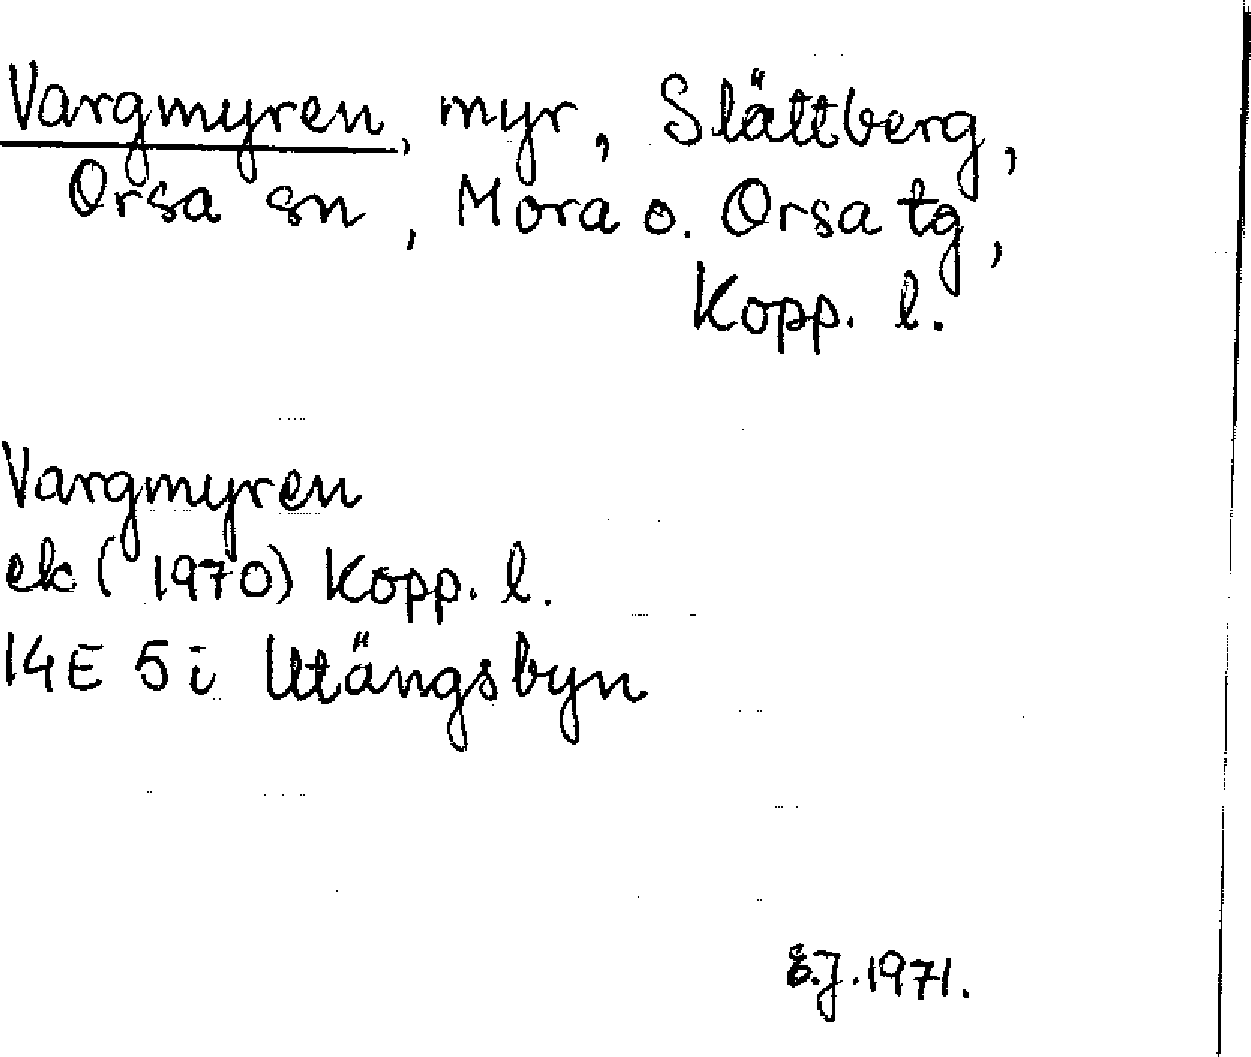 Vargmyren, myr, Slättberg,
Orsa sn, Mora o. Orsa tg,
Kopp. l.
Vargmyren
ek (1970) Kopp. l.
14E 5i Utängsbyn
1971.